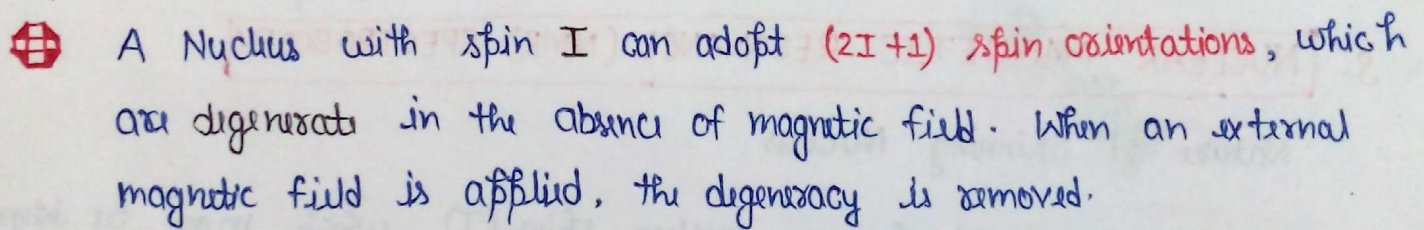 A Nucleus with spin I can adopt (2I+1) spin orientations, which
are degenerate in the absence of magnetic field. When an external
magnetic field is applied, the degeneracy is removed.